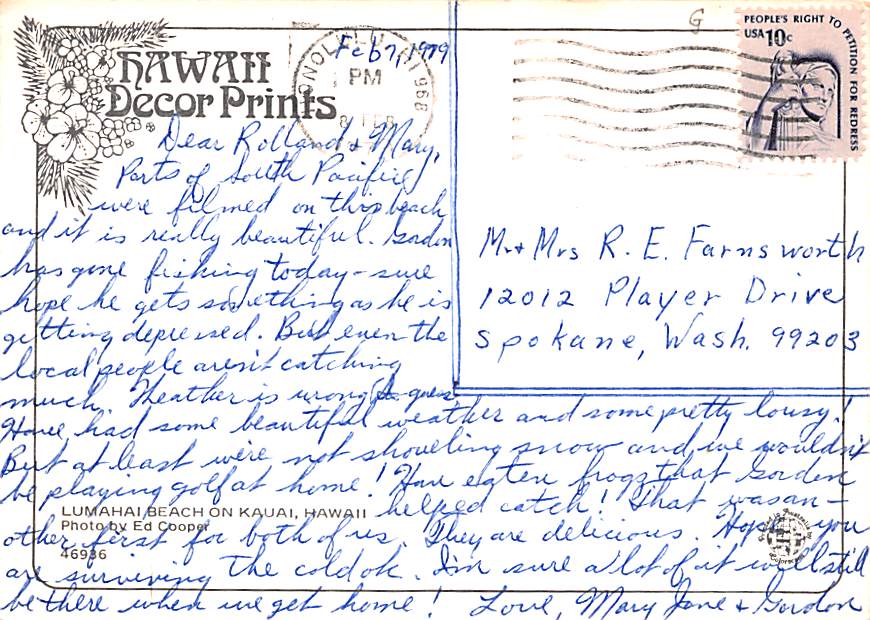 HAWAII
Decor Prints
Feb 7, 1979
HONOLULU, HI 968
PM
8 FEB
PEOPLE'S RIGHT TO PETITION FOR REDRESS
USA 10c
G
Dear Rolland & Mary,
Parts of South Pacific
were filmed on this beach
and it is really beautiful. Gordon
has gone fishing today - sure
hope he gets something as he is
getting depressed. But even the
local people aren't catching
much. Weather is wrong (I guess)
Have had some beautiful weather and some pretty lousy!
But at least we're not shoveling snow and we wouldn't
be playing golf at home! Have eaten frogs that Gordon
helped catch! That was an-
other first for both of us. They are delicious. Hope you
are surviving the cold ok. I'm sure a lot of it will still
be there when we get home! Love, Mary Jane & Gordon
Mr & Mrs R. E. Farnsworth
12012 Player Drive
Spokane, Wash. 99203
LUMAHAI BEACH ON KAUAI, HAWAII
Photo by Ed Cooper
46936